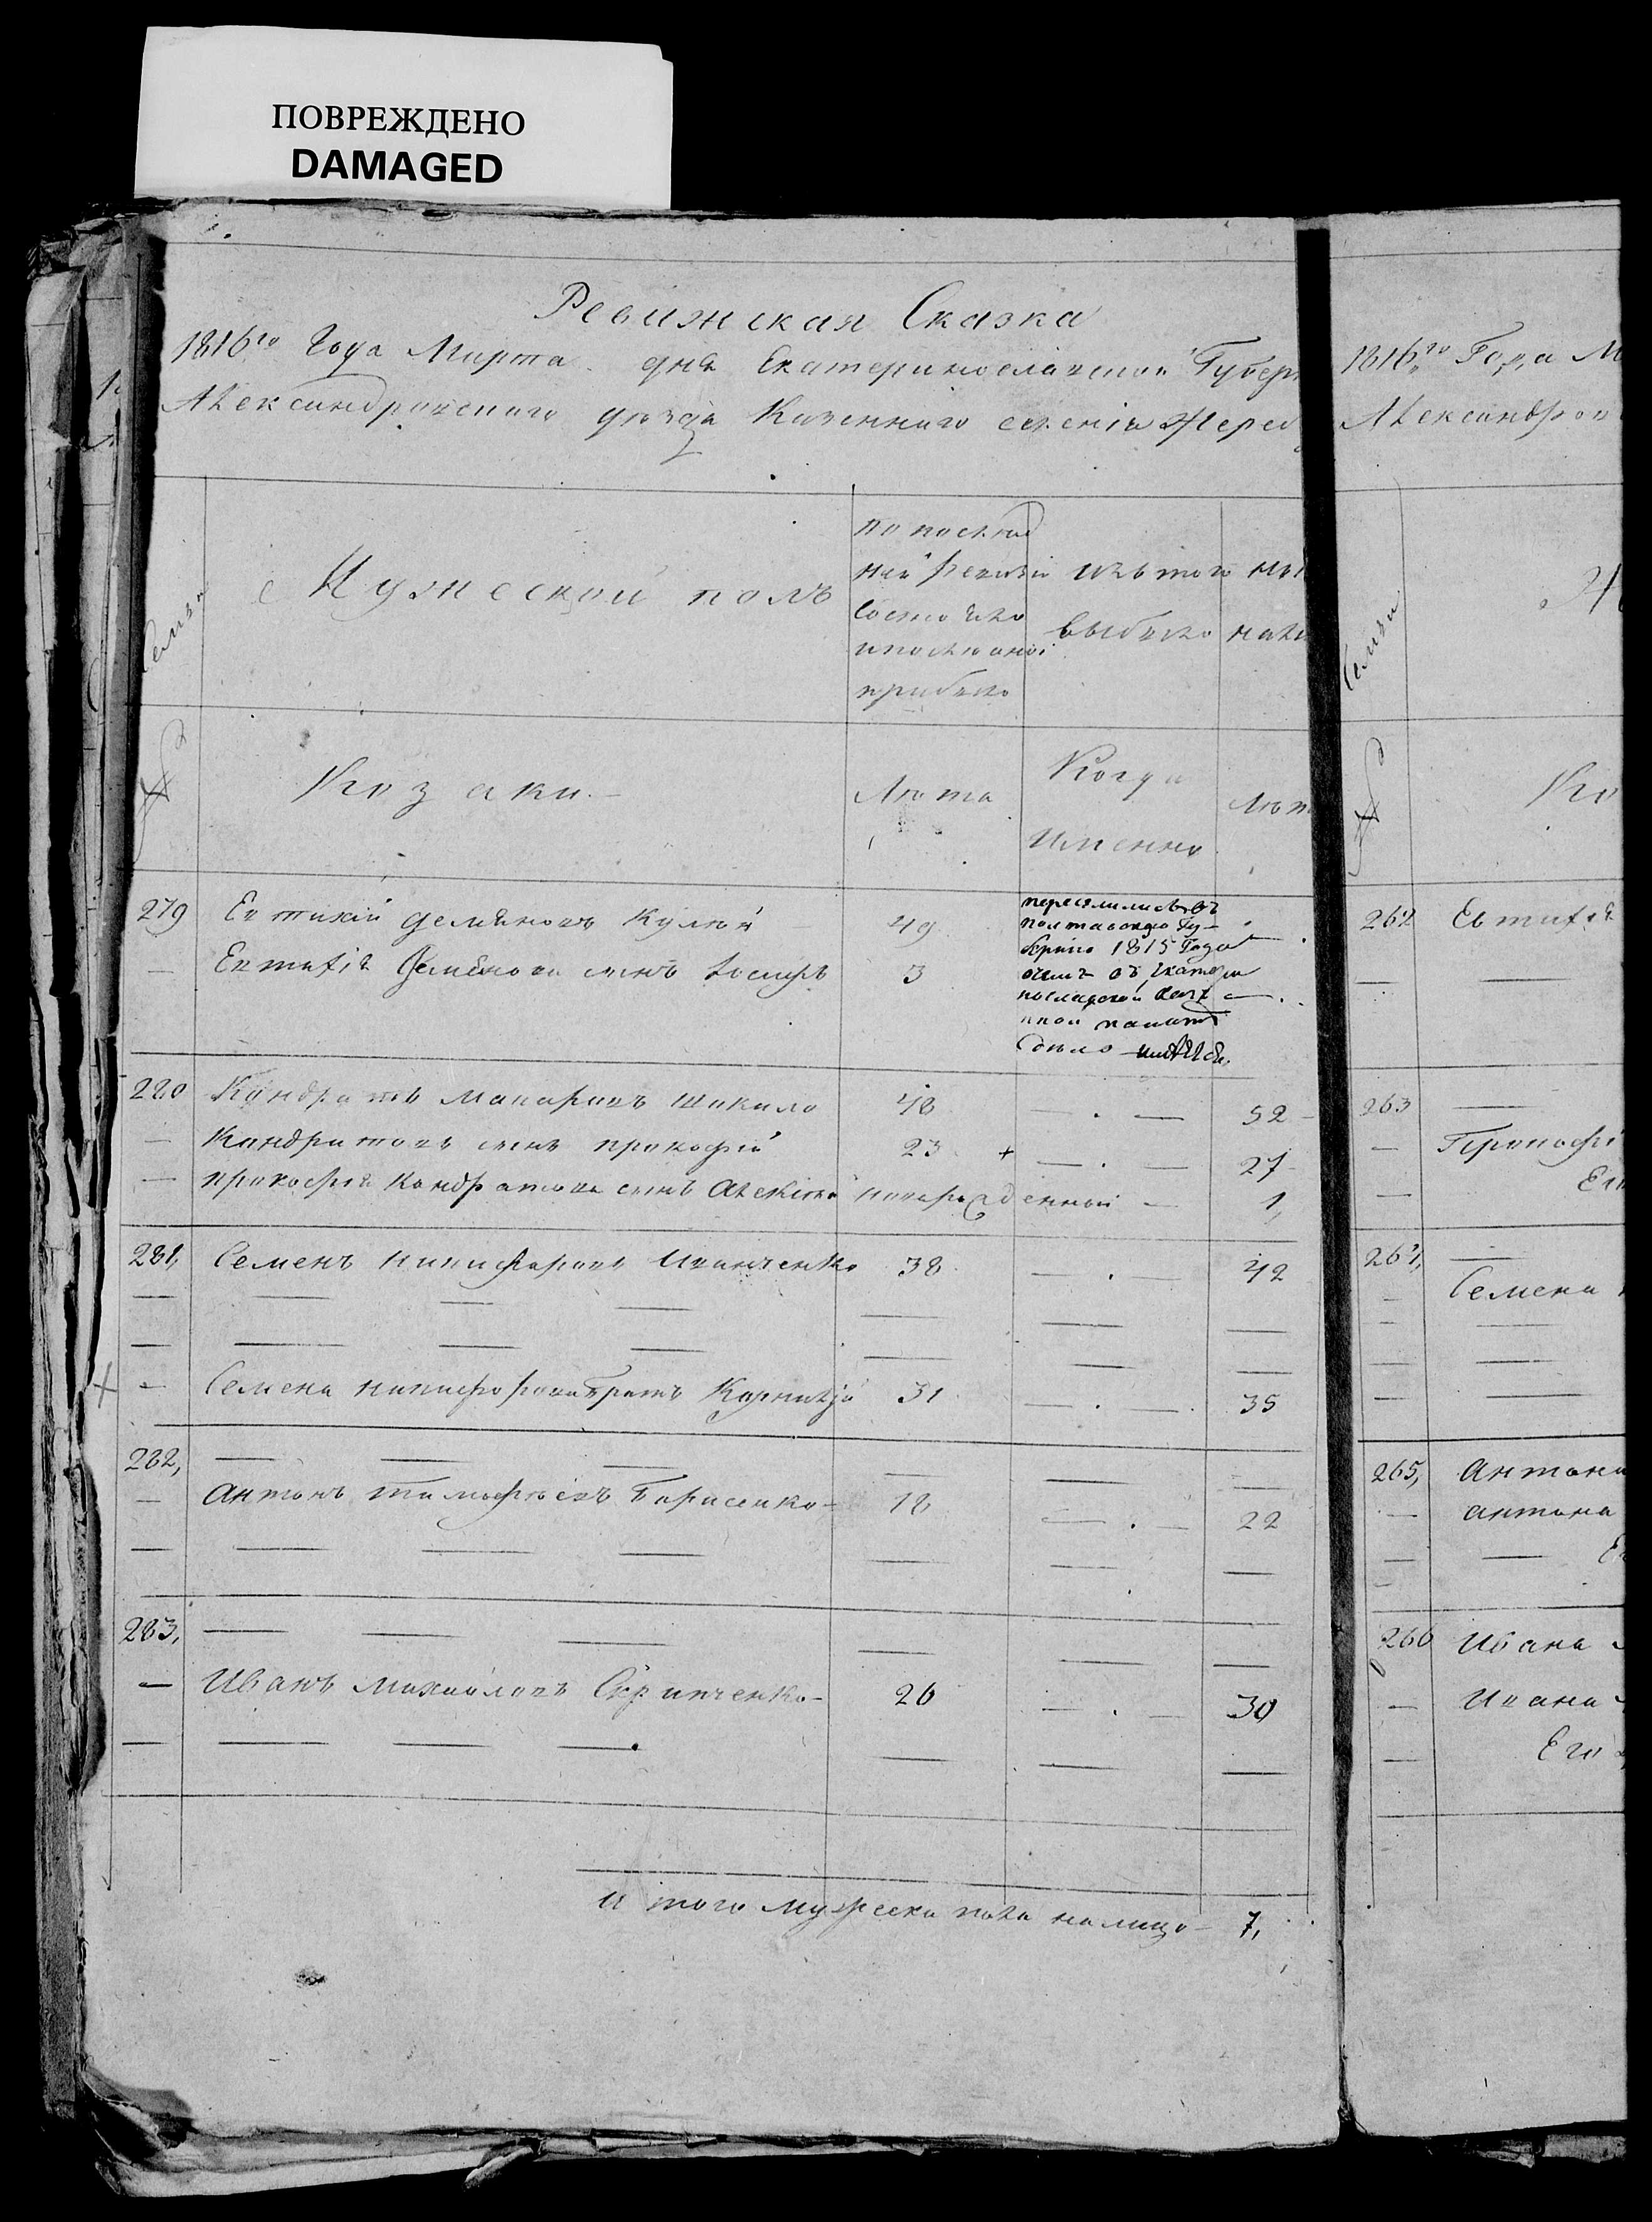 ПОВРЕЖДЕНО
DAMAGED
Ревижская Сказка
1816го Года Марта дня Екатеринославской Губер
Александровского уезда Казенного селенія Жереб
Семьи
Мужеской полъ
по послед
ней ревизіи
состояло
и после оной
прибыло
изъ того
выбыло
ны
нали
Козаки.
Лета
Когда
именно
Лет
279 Евтихій Демяновъ Кулей 49
— Евтихія Демянова сынъ 3
переселились въ
полтавскую Гу-
бернію 1815 Года
о чемъ въ Екатери
нославской Казе
нной палате
дело имеется.
280 Кондратъ Макаровъ Шикало 48 — . — 52
— Кондратовъ сынъ Прокофій 23 + — . — 27
— Прокофія Кондратова сынъ Алексей новорожденный — 1,
281, Семенъ Никифоровъ Иванченко 38 — . — 42
— Семена Никифорова братъ Корнилій 31 — . — 35
282,
— Антонъ Тимофеевъ Борисенко 18 — . — 22
283,
— Иванъ Михайловъ Скрипченко 26 — . — 30
Итого мужеска пола налицо — 7,
1816го Года М
Александров
Семьи
Ко
262 Евтихія
263
— Прокофі
264,
— Семена
265, Антона
— Антона
266 Ивана
— Ивана
Его